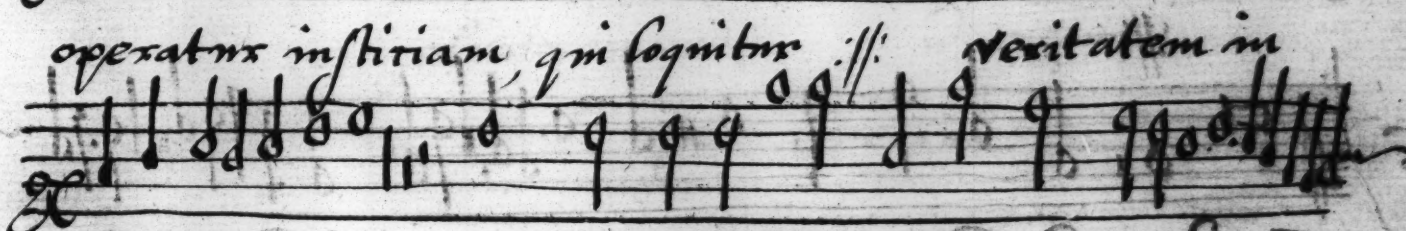 operatur iustitiam, qui loquitur :||: veritatem in